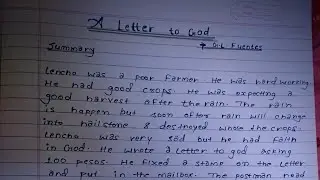 A Letter to God
→ G.L Fuentes
Summary
Lencho was a poor farmer. He was hardworking.
He had good crops. He was expecting a
good harvest after the rain. The rain
is happen but soon after rain will change
into hailstone & destroyed whole the crops.
Lencho was very sad but he had faith
in God. He wrote a letter to god asking
100 pesos. He fixed a stamp on the letter
and put in the mailbox. The postman read